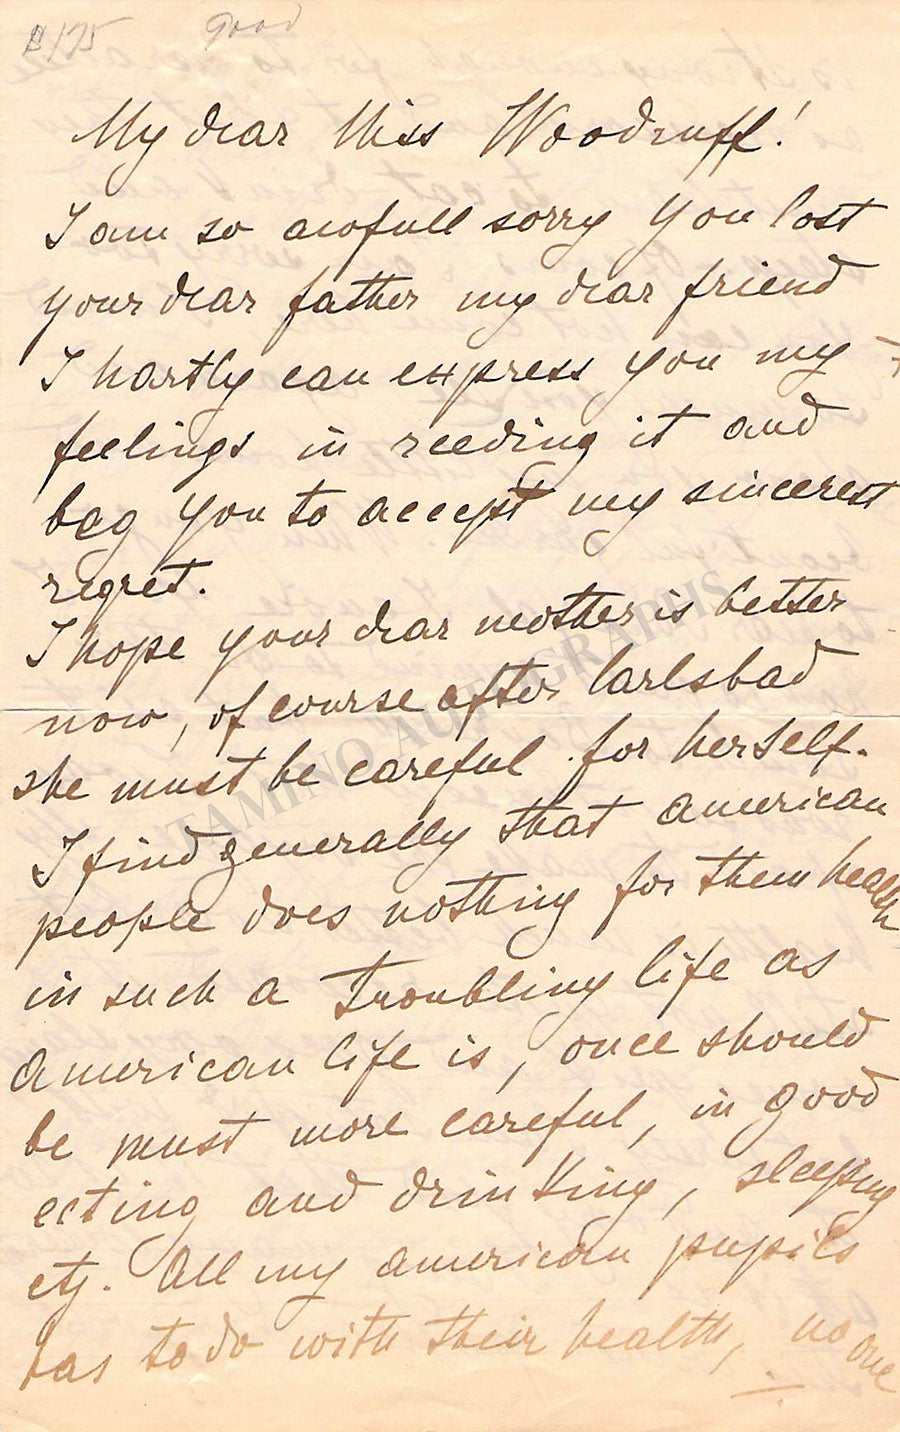 $175 good
My dear Miss Woodruff!
I am so awfull sorry you lost
your dear father my dear friend
I hartly can express you my
feelings in reeding it and
beg you to accept my sincerest
regret.
I hope your dear mother is better
now, of course after Carlsbad
she must be careful for herself.
I find generally that american
people does nothing for them health
in such a troubling life as
american life is, once should
be must more careful, in good
ecting and drinking, sleeping
etz. All my american pupils
has to do with their health, no one
TAMINO AUTOGRAPHS